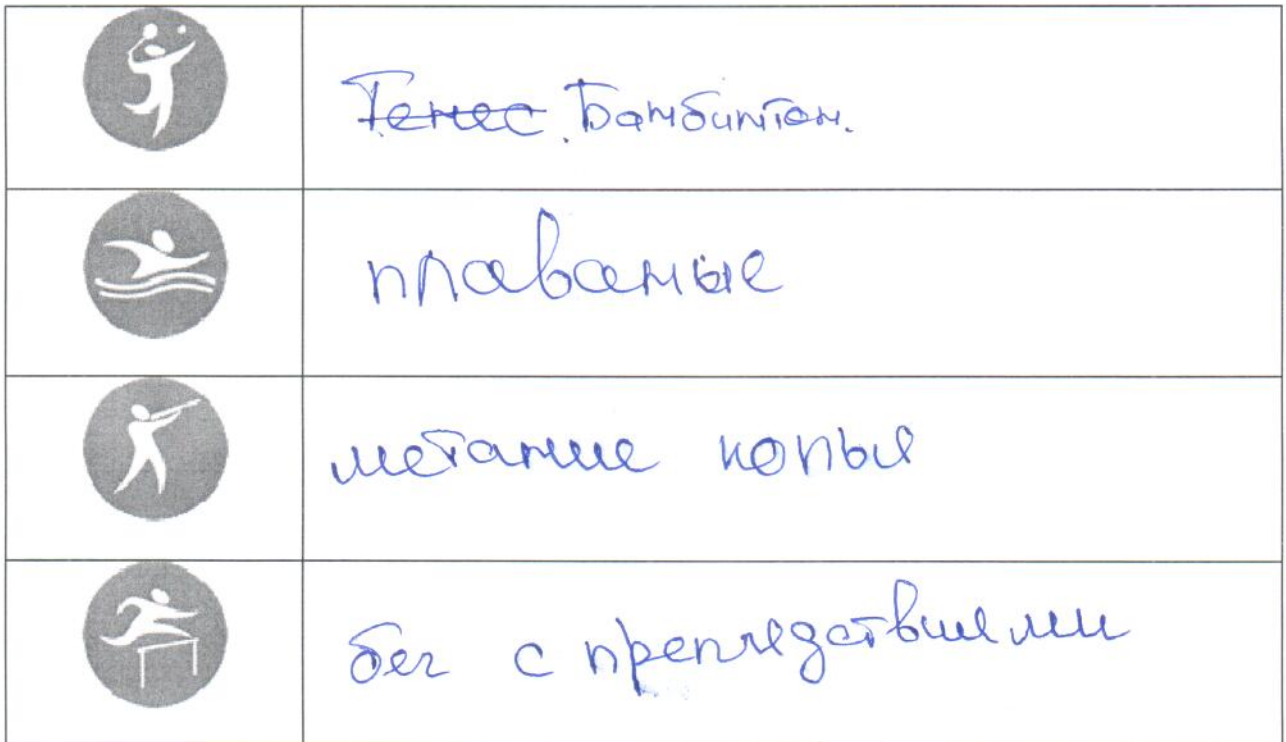 Тенес. Бамбинтон.
плаваные
метание копья
бег с препядствиями